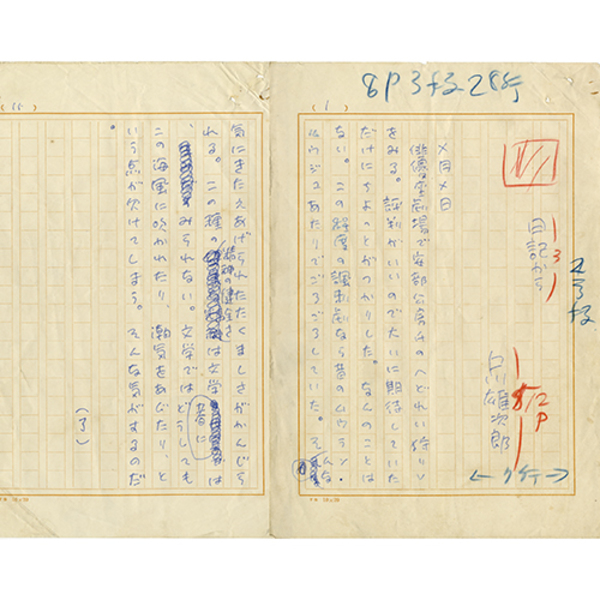 (1)
日記から
戸川雄次郎
×月×日
俳優座劇場で安部公房氏の「どれい狩り」
をみる。評判がいいので大いに期待していた
だけにちょっとがっかりした。なんのことは
ない。この程度の諷刺劇なら昔のムウラン・
ルウジュあたりでごろごろしていた。そんな
8P 3段 28行
←7行→
(15)
気にきたえあげられたたくましさがかんじら
れる。この種の精神の健全さは文学では
みられない。文学ではどうしても
この海風に吹かれたり、潮気をあんだり、と
いう点が欠けてしまう。そんな気がするのだ
。
(了)